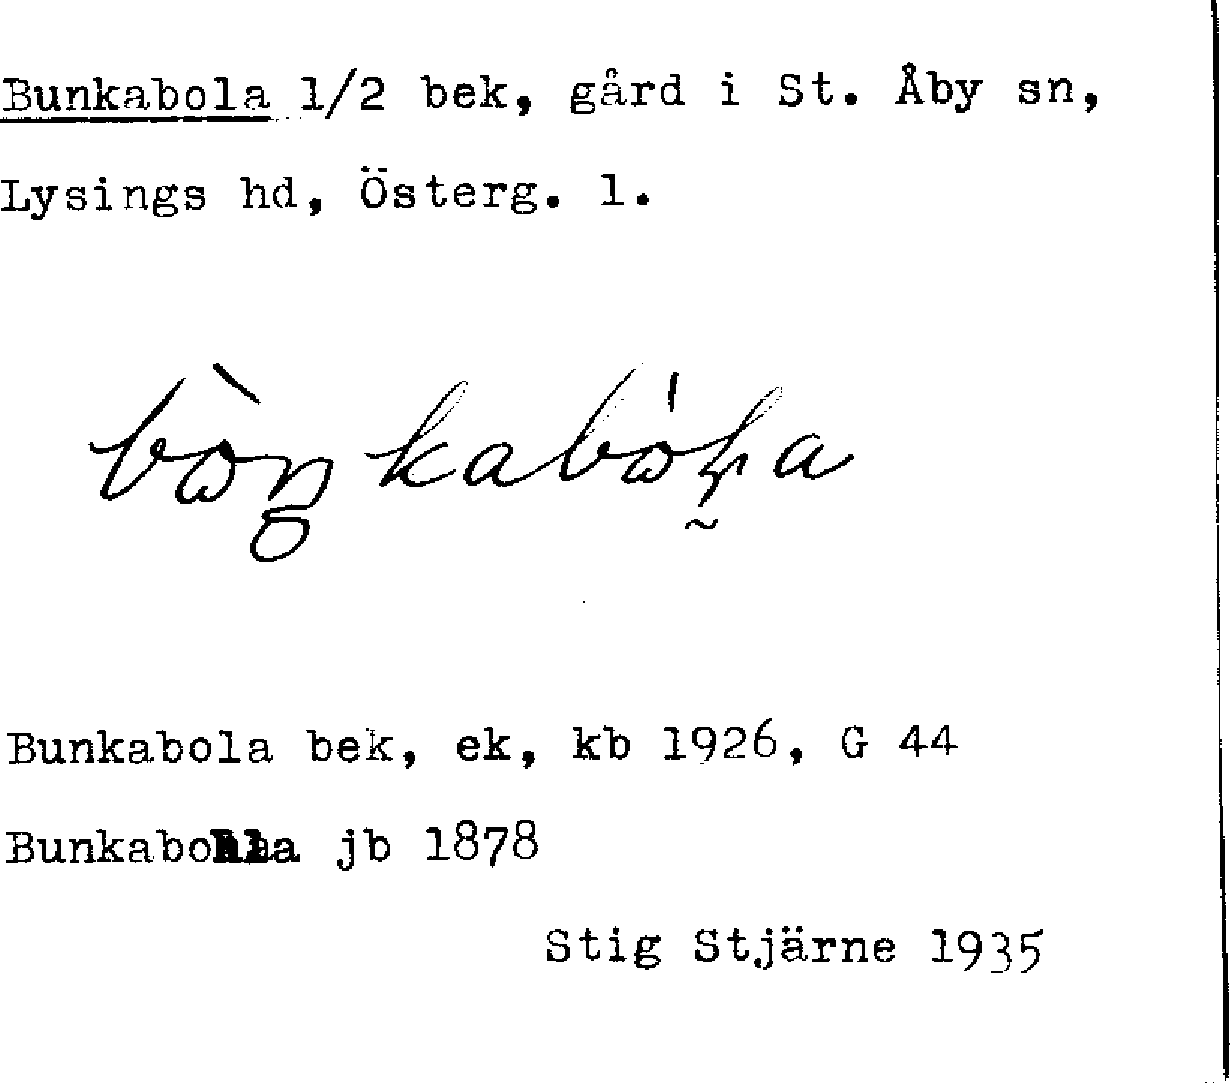 Bunkabola 1/2 bek, gård i St. Åby sn,
Lysings hd, Österg. l.
Bunkabola bek, ek, kb 1926, G 44
jb 1878
Stig Stjärne 1935